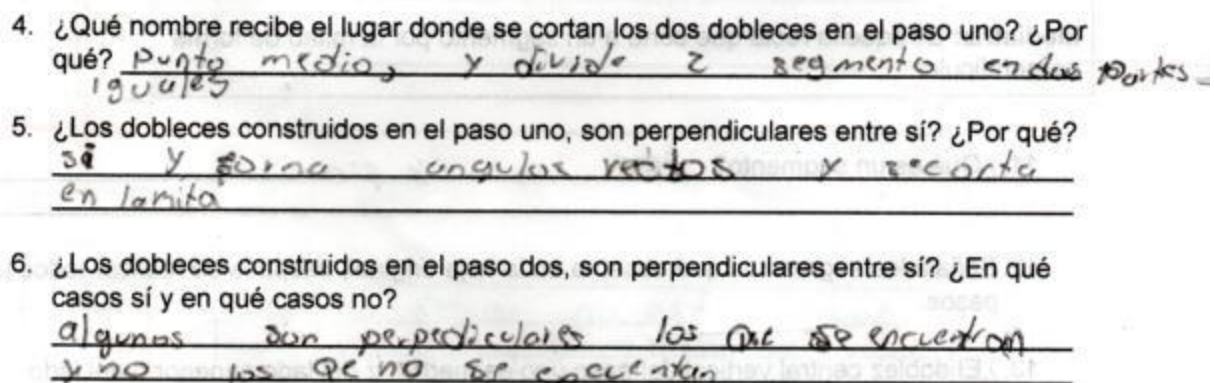 4. ¿Qué nombre recibe el lugar donde se cortan los dos dobleces en el paso uno? ¿Por
qué? Punto medio, y divide 2 segmento en dos partes
iguales
5. ¿Los dobleces construidos en el paso uno, son perpendiculares entre sí? ¿Por qué?
si y forma angulos rectos y se corta
en la mita
6. ¿Los dobleces construidos en el paso dos, son perpendiculares entre sí? ¿En qué
casos sí y en qué casos no?
algunos son perpediculares los que se encuentran
y no los qe no se encuentan